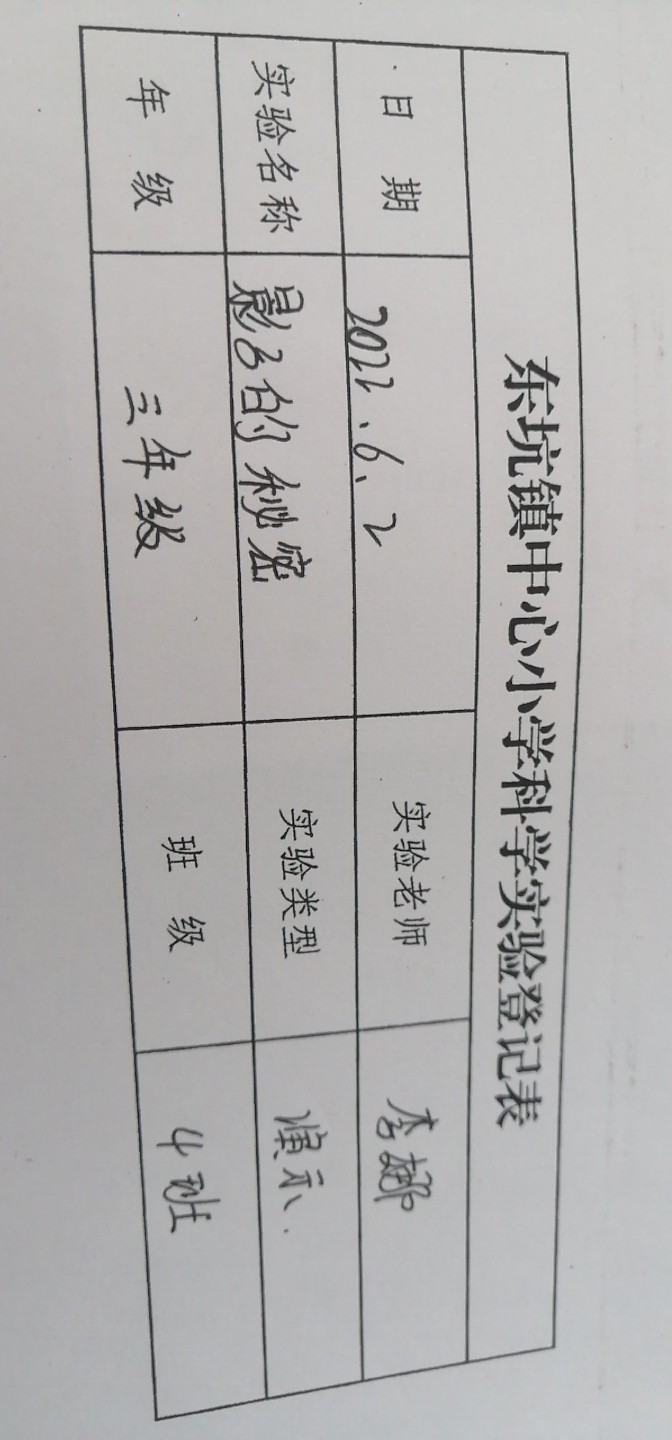 东坑镇中心小学科学实验登记表
日 期 2022.6.2 实验老师 李娜
实验名称 影子的秘密 实验类型 演示.
年 级 三年级 班 级 4班